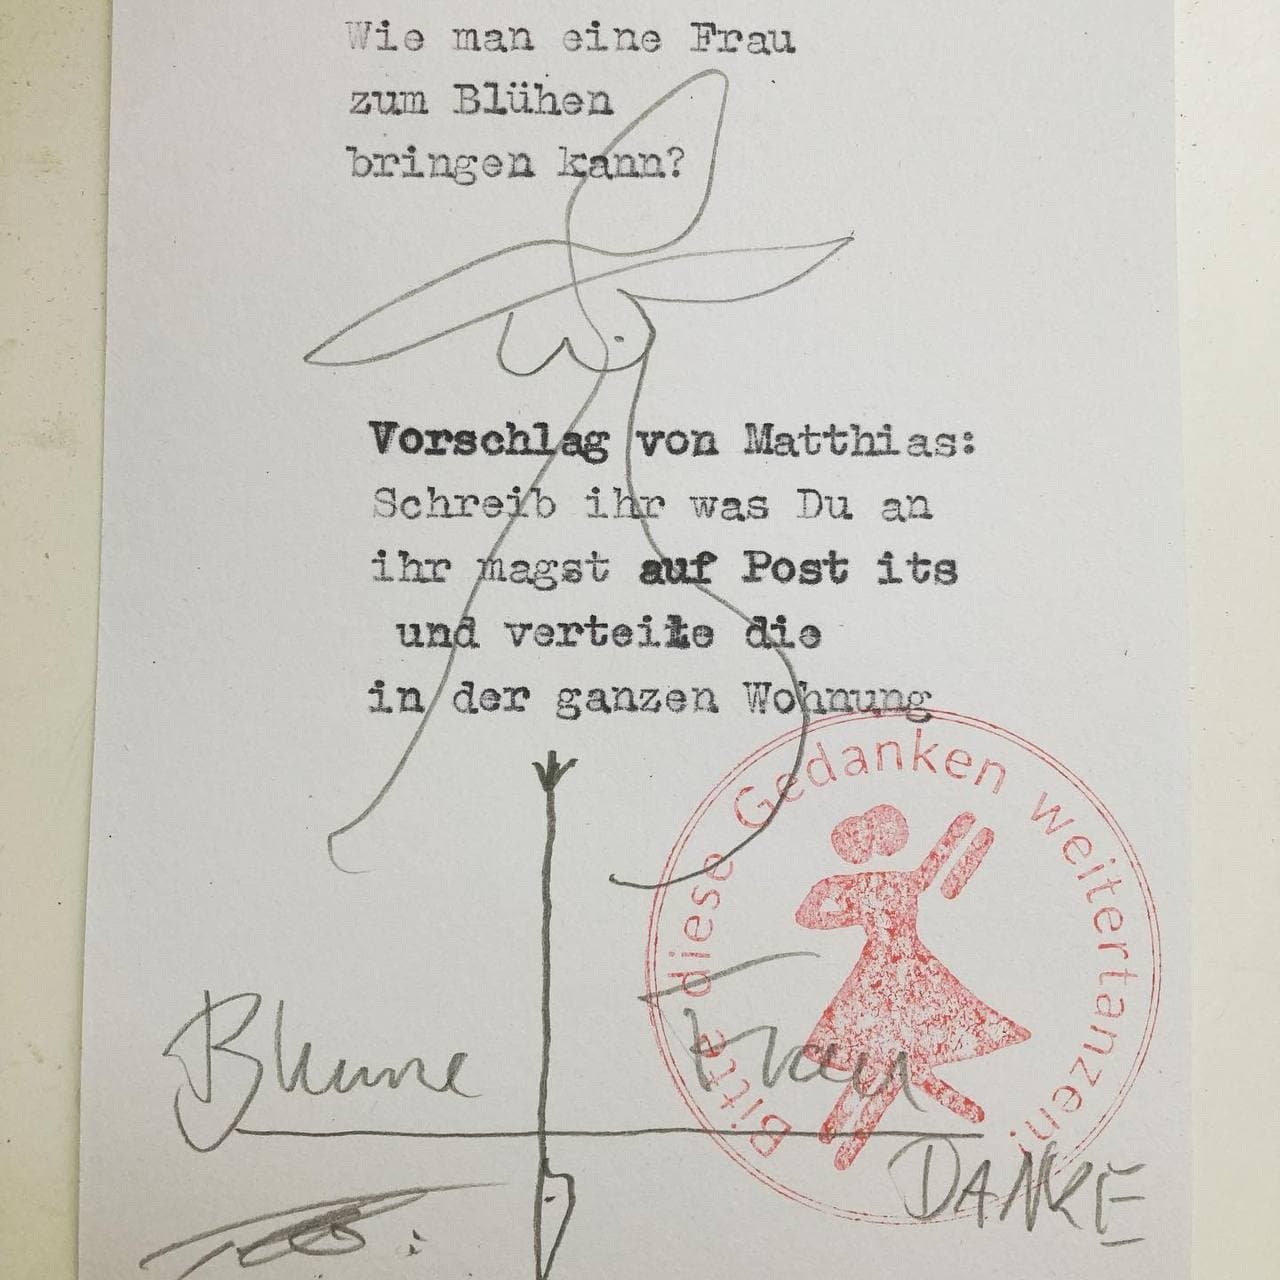 Wie man eine Frau
zum Blühen
bringen kann?
Vorschlag von Matthias:
Schreib ihr was Du an
ihr magst auf Post its
und verteile die
in der ganzen Wohnung
Bitte diese Gedanken weitertanzen!
Blume
Frau
DANKE